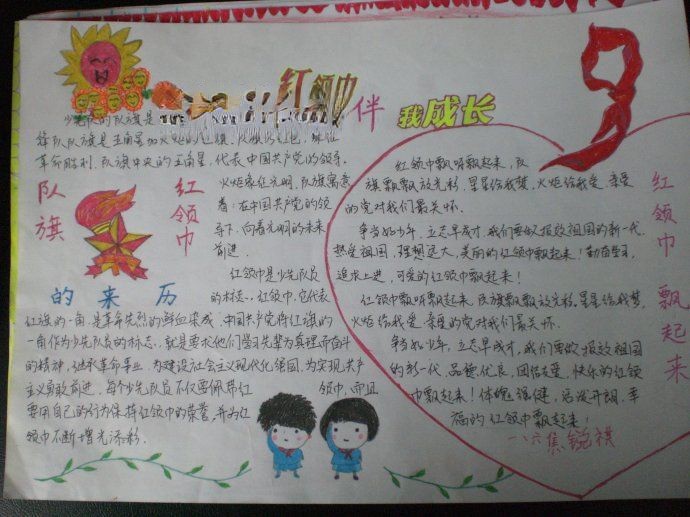 红领巾
伴
我成长
少先队的队旗是
队队旗是五角星加火炬的
革命胜利.队旗中央的五角星,代表中国共产党的领导.
火炬象征光明,队旗寓意
着:在中国共产党的领
导下,向着光明的未来
前进.
队旗
红领巾
的来历
红领巾是少先队员
的标志..红领巾,它代表
红旗的一角,是革命先烈的鲜血染成.中国共产党将红旗的
一角作为少先队员的标志.就是要求他们学习先辈为真理而奋斗
的精神,继承革命事业,为建设社会主义现代化强国,为实现共产
主义勇敢前进.每个少先队员不仅要佩带红领巾,而且
要用自己的行为保持红领巾的荣誉,并为红
领巾不断增光添彩.
红领巾飘呀飘起来,队
旗飘飘放光彩.星星给我梦,火炬给我爱,亲爱
的党对我们最关怀.
争当好少年,立志早成才,我们要做报效祖国的新一代.
热爱祖国,理想远大,美丽的红领巾飘起来!勤奋学习,
追求上进,可爱的红领巾飘起来!
红领巾飘呀飘起来,队旗飘飘放光彩.星星给我梦,
火炬给我爱,亲爱的党对我们最关怀.
争当好少年,立志早成才,我们要做报效祖国
的新一代.品德优良,团结友爱,快乐的红领
巾飘起来!体魄强健,活泼开朗,幸
福的红领巾飘起来!
红领巾飘起来
一、六焦锐祺